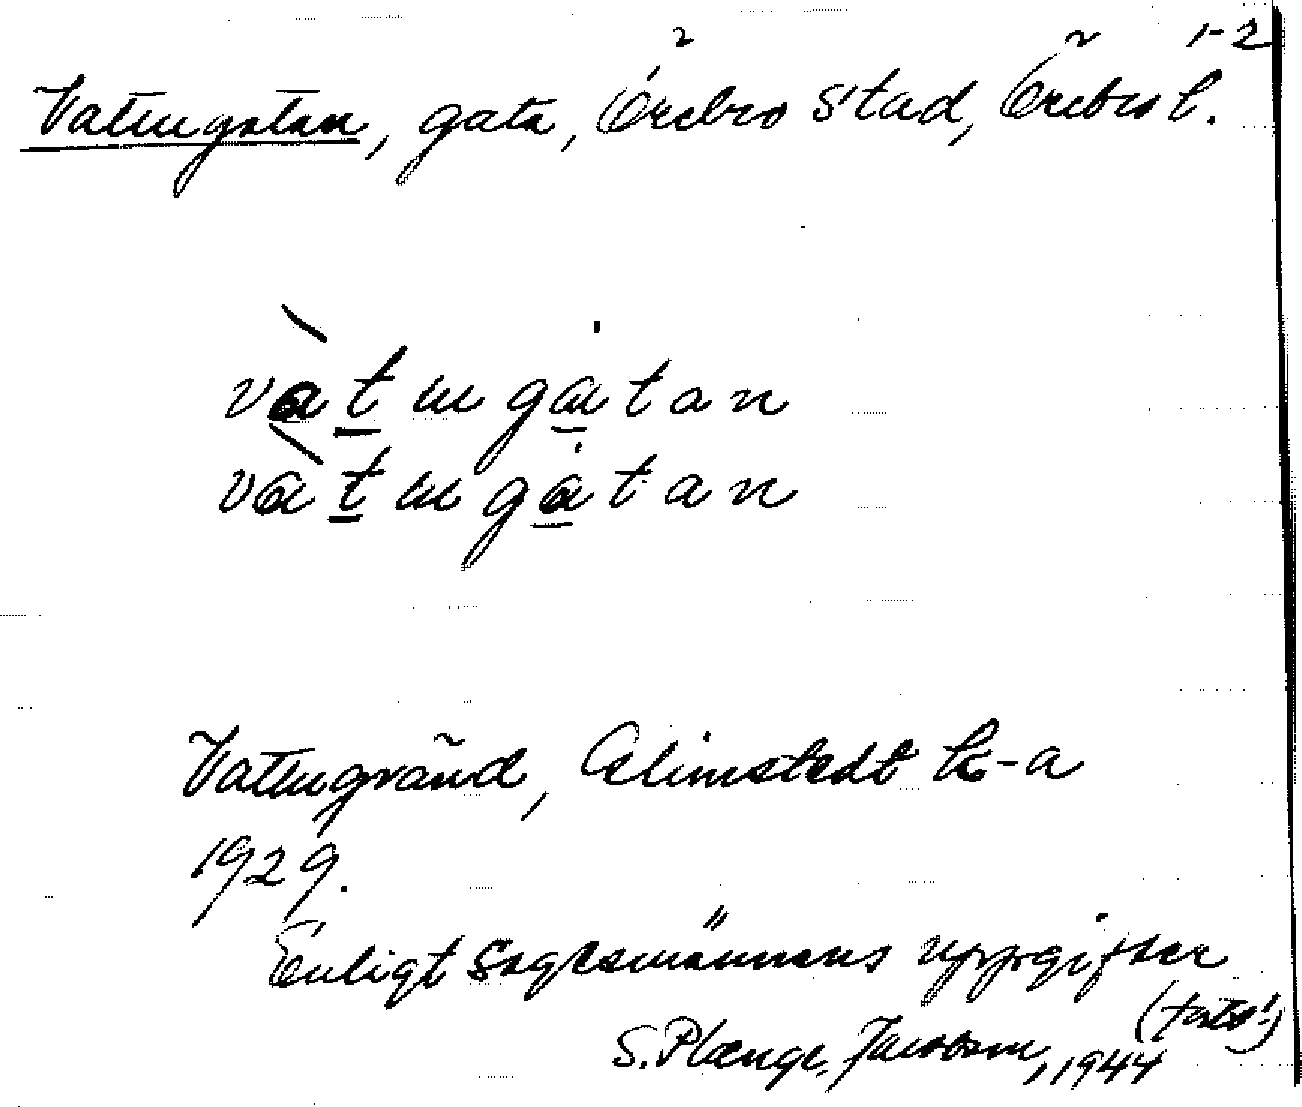 Vattugatan, gata, Örebro stad, Örebro l. 1-2
vàtugatan
vàtugatan
Vattugränd, Elimstedt k-a
1929.
Enligt sagesmännens uppgifter
(forts!)
S. Plænge Jacobson, 1944